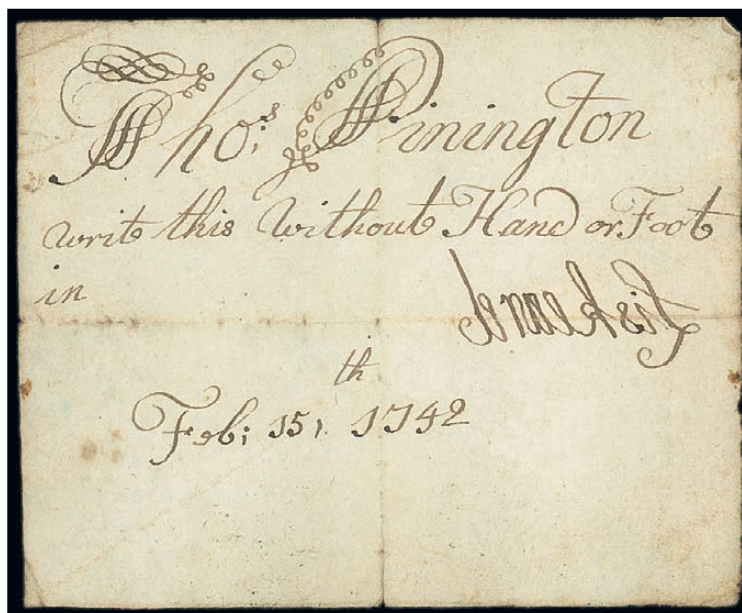 Tho: Pinington
writ this without Hand or Foot
in
th
Feb: 15, 1742